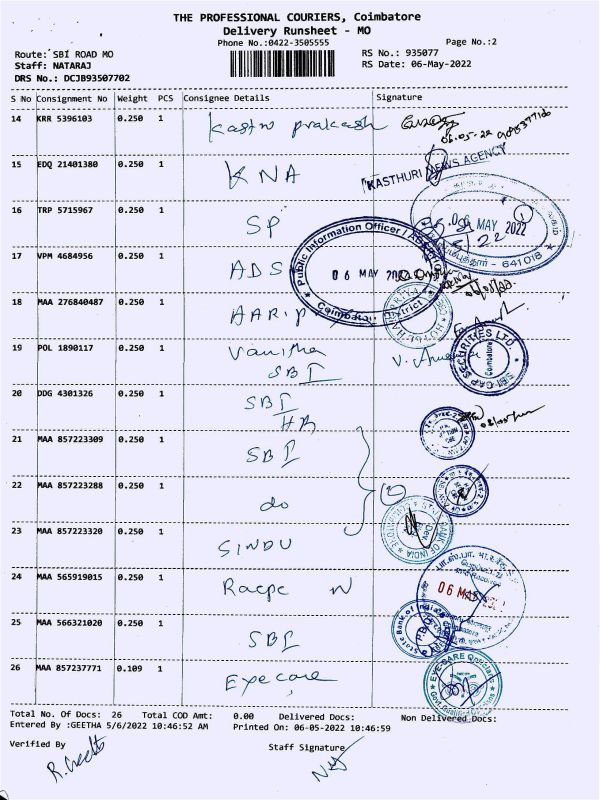 THE PROFESSIONAL COURIERS, Coimbatore
Delivery Runsheet - MO
Phone No.:0422-3505555 Page No.:2
Route: SBI ROAD MO RS No.: 935077
Staff: NATARAJ RS Date: 06-May-2022
DRS No.: DCJB93507702
S No Consignment No Weight PCS Consignee Details Signature
14 KRR 5396103 0.250 1 Kastro prakash
06.05-22
15 EDQ 21401380 0.250 1 KNA KASTHURI NEWS AGENCY
16 TRP 5715967 0.250 1 SP 06 MAY 2022
641018
17 VPM 4684956 0.250 1 ADS Public Information Officer 06 MAY
Coimbatore District
18 MAA 276840487 0.250 1
19 POL 1890117 0.250 1 Vanitha
SBI SBI-CAP SECURITIES LTD. Coimbatore
20 DDG 4301326 0.250 1 SBI
HR
21 MAA 857223309 0.250 1 SBI
22 MAA 857223288 0.250 1 do
23 MAA 857223320 0.250 1 SINDU BANK OF INDIA
24 MAA 565919015 0.250 1 Racpc 06 MAY
25 MAA 566321020 0.250 1 SBI State Bank of India
26 MAA 857237771 0.109 1 Eye care EYE-CARE
Total No. Of Docs: 26 Total COD Amt: 0.00 Delivered Docs: Non Delivered Docs:
Entered By :GEETHA 5/6/2022 10:46:52 AM Printed On: 06-05-2022 10:46:59
Verified By Staff Signature
R. Geetha